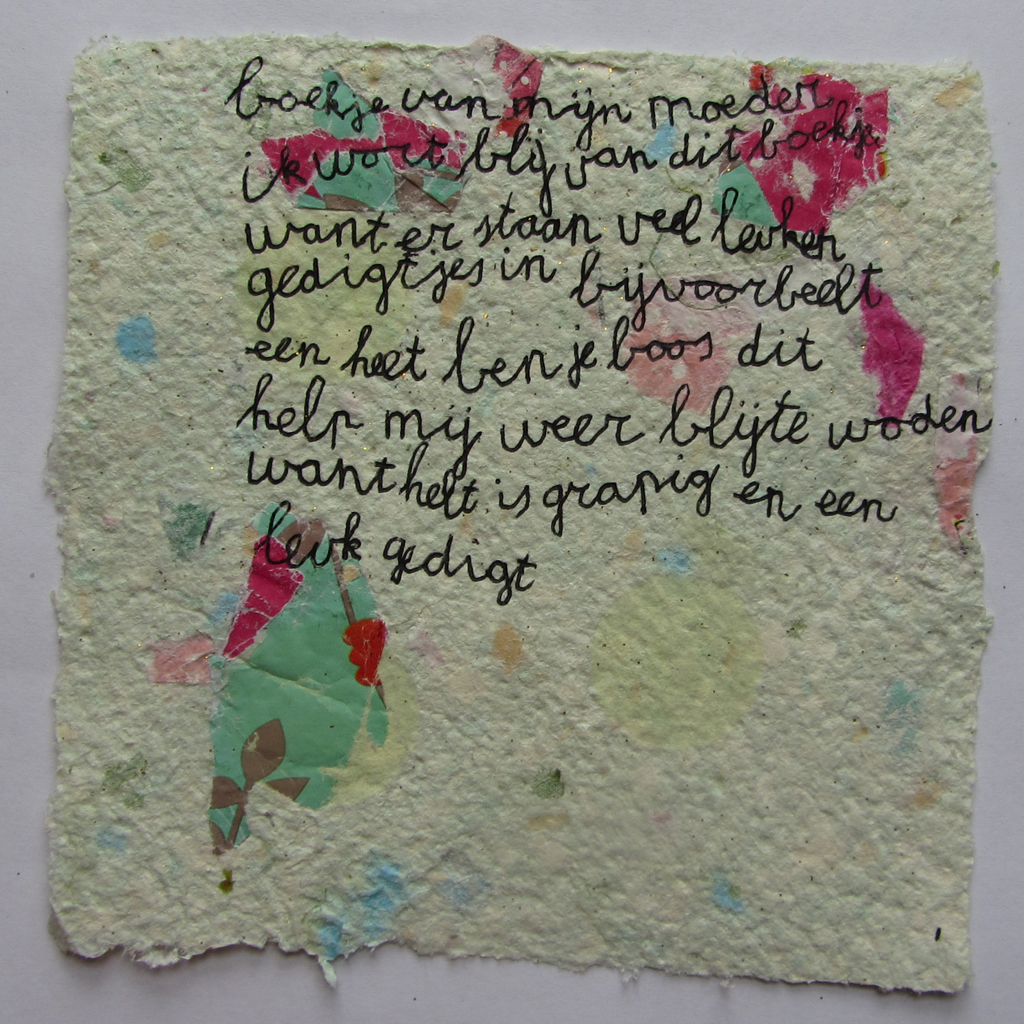 boekje van mijn moeder
ik wort blij van dit boekje
want er staan veel leuken
gedigtjes in bijvoorbeelt
een heet ben je boos dit
help mij weer blijte woden
want helt is grapig en een
leuk gedigt